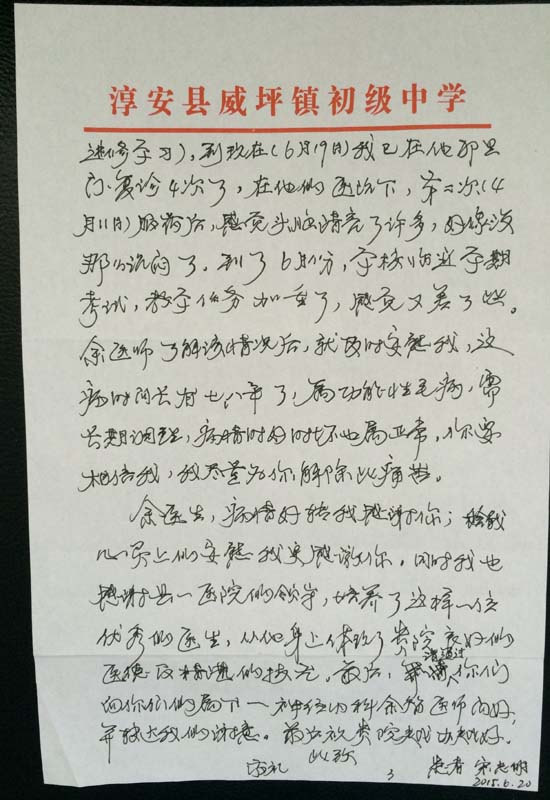 淳安县威坪镇初级中学
进修学习），到现在（6月19日）我已在他那里
门复诊4次了，在他的医治下，第二次（4
月11日）服药后，感觉头脑清亮了许多，好像没
那么沉闷了。到了6月份，学校临近学期
考试，教学任务加重了，感觉又差了些。
余医师了解该情况后，就及时安慰我，这
病时间长有七八年了，属功能性毛病，需
长期调理，病情时好时坏也属正常，你要
相信我，我尽量为你解除此痛苦。
余医生，病情好转我感谢你；给我
心灵上的安慰我更感激你。同时我也
感谢县一医院的领导，培养了这样一位
优秀的医生，从他身上体现了贵院良好的
医德及精湛的技术。最后，请通过你们
向你们的属下一神经内科余 医师问好，
并转达我的谢意。最后祝贵院越办越好！
此致
敬礼
3
患者 宋
2015.6.20